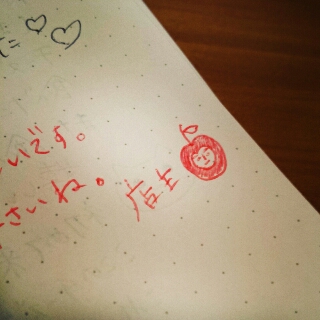 た♡♡
いです。
さいね。
店主